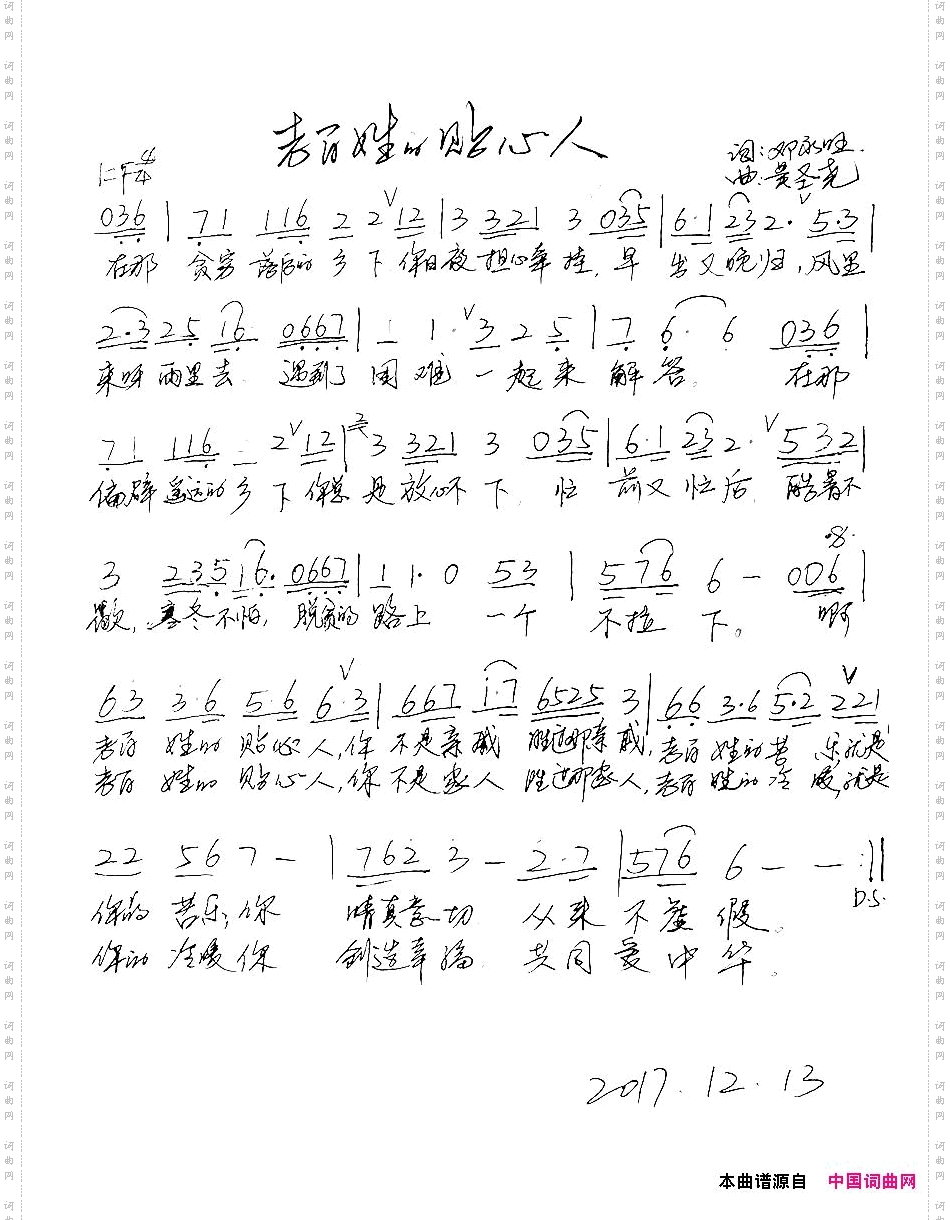 老百姓的贴心人
1=F 4/4
词:邓永旺
曲:黄圣尧
036 | 71 116 2 2 12 | 3 321 3 035 | 6·1 232· 5·3 |
在那 贫穷 落后的 乡 下 你日夜 担心牵挂,早 出又晚归,风里
2·325 16 0667 | 1 1· 3 2 5 | 7 6· 6 036 |
来呀雨里去 遇到了 困难 一起来 解答。 在那
71 116 2 2 12 | 3 321 3 035 | 6·1 232· 532 |
偏僻 遥远的 乡 下 你总 是放心不下,忙 前又忙后 酷暑不
3 23516· 0667 | 1 1· 0 53 | 576 6 - 006 |
歇,寒冬不怕,脱贫的 路上 一个 不拉 下。 啊
63 3·6 5·6 6·3 | 667 1·7 6525 3 | 66 3·6 5·2 221 |
老百 姓的 贴心人,你 不是亲戚 胜过那亲戚,老百 姓的苦 乐就是
老百 姓的 贴心人,你 不是家人 胜过那家人,老百 姓的冷 暖,就是
22 56 7 - | 762 3 - 2·7 | 576 6 - - :||
D.S.
你的 苦乐,你 情真意切 从来 不虚 假。
你的 冷暖你 创造幸福 共同爱中华。
2017.12.13
本曲谱源自 中国词曲网
词曲网